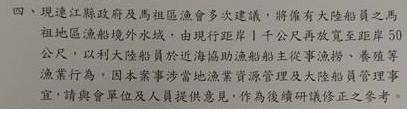 四、現連江縣政府及馬祖區漁會多次建議，將僱有大陸船員之馬
祖地區漁船境外水域，由現行距岸1千公尺再放寬至距岸50
公尺，以利大陸船員於近海協助漁船船主從事漁撈、養殖等
漁業行為，因本案事涉當地漁業資源管理及大陸船員管理事
宜，請與會單位及人員提供意見，作為後續研議修正之參考。